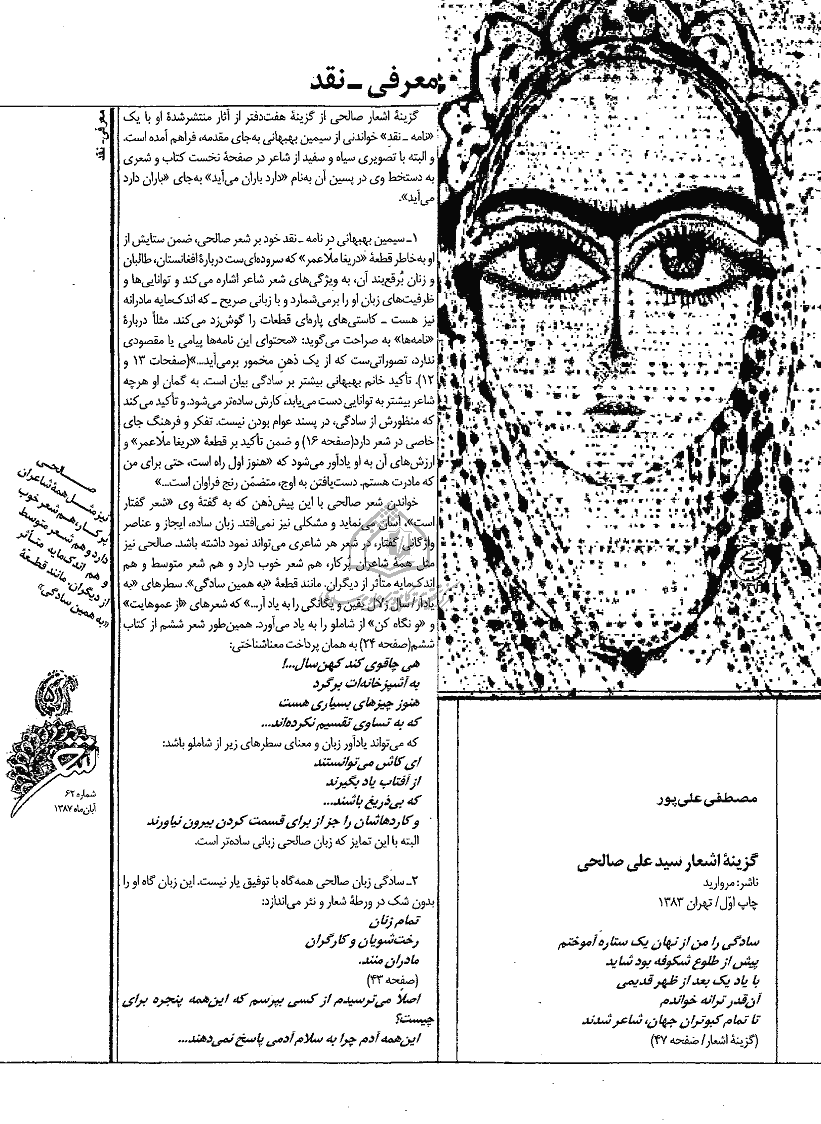 معرفی ـ نقد
معرفی ـ نقد
گزینهٔ اشعار صالحی از گزینهٔ هفت‌دفتر از آثار منتشرشدهٔ او با یک
«نامه ـ نقد» خواندنی از سیمین بهبهانی به‌جای مقدمه، فراهم آمده است.
و البته با تصویری سیاه و سفید از شاعر در صفحهٔ نخست کتاب و شعری
به دستخط وی در پسین آن به‌نام «دارد باران می‌آید» به‌جای «باران دارد
می‌آید».
۱ـ سیمین بهبهانی در نامه ـ نقد خود بر شعر صالحی، ضمن ستایش از
او به‌خاطر قطعهٔ «دریغا ملاعمر» که سروده‌ای‌ست دربارهٔ افغانستان، طالبان
و زنان بُرقع‌بند آن، به ویژگی‌های شعر شاعر اشاره می‌کند و توانایی‌ها و
ظرفیت‌های زبان او را برمی‌شمارد و با زبانی صریح ـ که اندک‌مایه مادرانه
نیز هست ـ کاستی‌های پاره‌ای قطعات را گوش‌زد می‌کند. مثلاً دربارهٔ
«نامه‌ها» به صراحت می‌گوید: «محتوای این نامه‌ها پیامی یا مقصودی
ندارد، تصوراتی‌ست که از یک ذهن مخمور برمی‌آید...»(صفحات ۱۳ و
۱۲). تأکید خانم بهبهانی بیشتر بر سادگی بیان است. به گمان او هرچه
شاعر بیشتر به توانایی دست می‌یابد، کارش ساده‌تر می‌شود. و تأکید می‌کند
که منظورش از سادگی، در پسند عوام بودن نیست. تفکر و فرهنگ جای
خاصی در شعر دارد(صفحه ۱۶) و ضمن تأکید بر قطعهٔ «دریغا ملاعمر» و
ارزش‌های آن به او یادآور می‌شود که «هنوز اول راه است، حتی برای من
که مادرت هستم. دست‌یافتن به اوج، متضمّن رنج فراوان است...»
خواندن شعر صالحی با این پیش‌ذهن که به گفتهٔ وی «شعر گفتار
است»، آسان می‌نماید و مشکلی نیز نمی‌افتد. زبان ساده، ایجاز و عناصر
واژگانی گفتار، در شعر هر شاعری می‌تواند نمود داشته باشد. صالحی نیز
مثل همهٔ شاعران پُرکار، هم شعر خوب دارد و هم شعر متوسط و هم
اندک‌مایه متأثر از دیگران. مانند قطعهٔ «به همین سادگی». سطرهای «به
یادآر/ سال زلال یقین و یگانگی را به یاد آر...» که شعرهای «از عموهایت»
و «و نگاه کن» از شاملو را به یاد می‌آورد. همین‌طور شعر ششم از کتاب
ششم(صفحه ۲۴) به همان پرداخت معناشناختی:
هی چاقوی کند کهن‌سال...!
به آشپزخانه‌ات برگرد
هنوز چیزهای بسیاری هست
که به تساوی تقسیم نکرده‌اند...
که می‌تواند یادآور زبان و معنای سطرهای زیر از شاملو باشد:
ای کاش می‌توانستند
از آفتاب یاد بگیرند
که بی‌دریغ باشند...
و کاردهاشان را جز از برای قسمت کردن بیرون نیاورند
البته با این تمایز که زبان صالحی زبانی ساده‌تر است.
۲ـ سادگی زبان صالحی همه‌گاه با توفیق یار نیست. این زبان گاه او را
بدون شک در ورطهٔ شعار و نثر می‌اندازد:
تمام زنان
رخت‌شویان و کارگران
مادران منند.
(صفحه ۴۳)
اصلاً می‌ترسیدم از کسی بپرسم که این‌همه پنجره برای
چیست؟
این‌همه آدم چرا به سلام آدمی پاسخ نمی‌دهند...
صالحی
نیز مثل همهٔ شاعران
پُرکار، هم شعر خوب
دارد و هم شعر متوسط
و هم اندک‌مایه متأثر
از دیگران. مانند قطعهٔ
«به همین سادگی»
شعر
شماره ۶۲
آبان‌ماه ۱۳۸۷
مصطفی علی‌پور
گزینهٔ اشعار سید علی صالحی
ناشر: مروارید
چاپ اوّل/ تهران ۱۳۸۳
سادگی را من از نهان یک ستاره آموختم
پیش از طلوع شکوفه بود شاید
با یاد یک بعد از ظهر قدیمی
آن‌قدر ترانه خواندم
تا تمام کبوتران جهان، شاعر شدند
(گزینهٔ اشعار/ صفحه ۴۷)